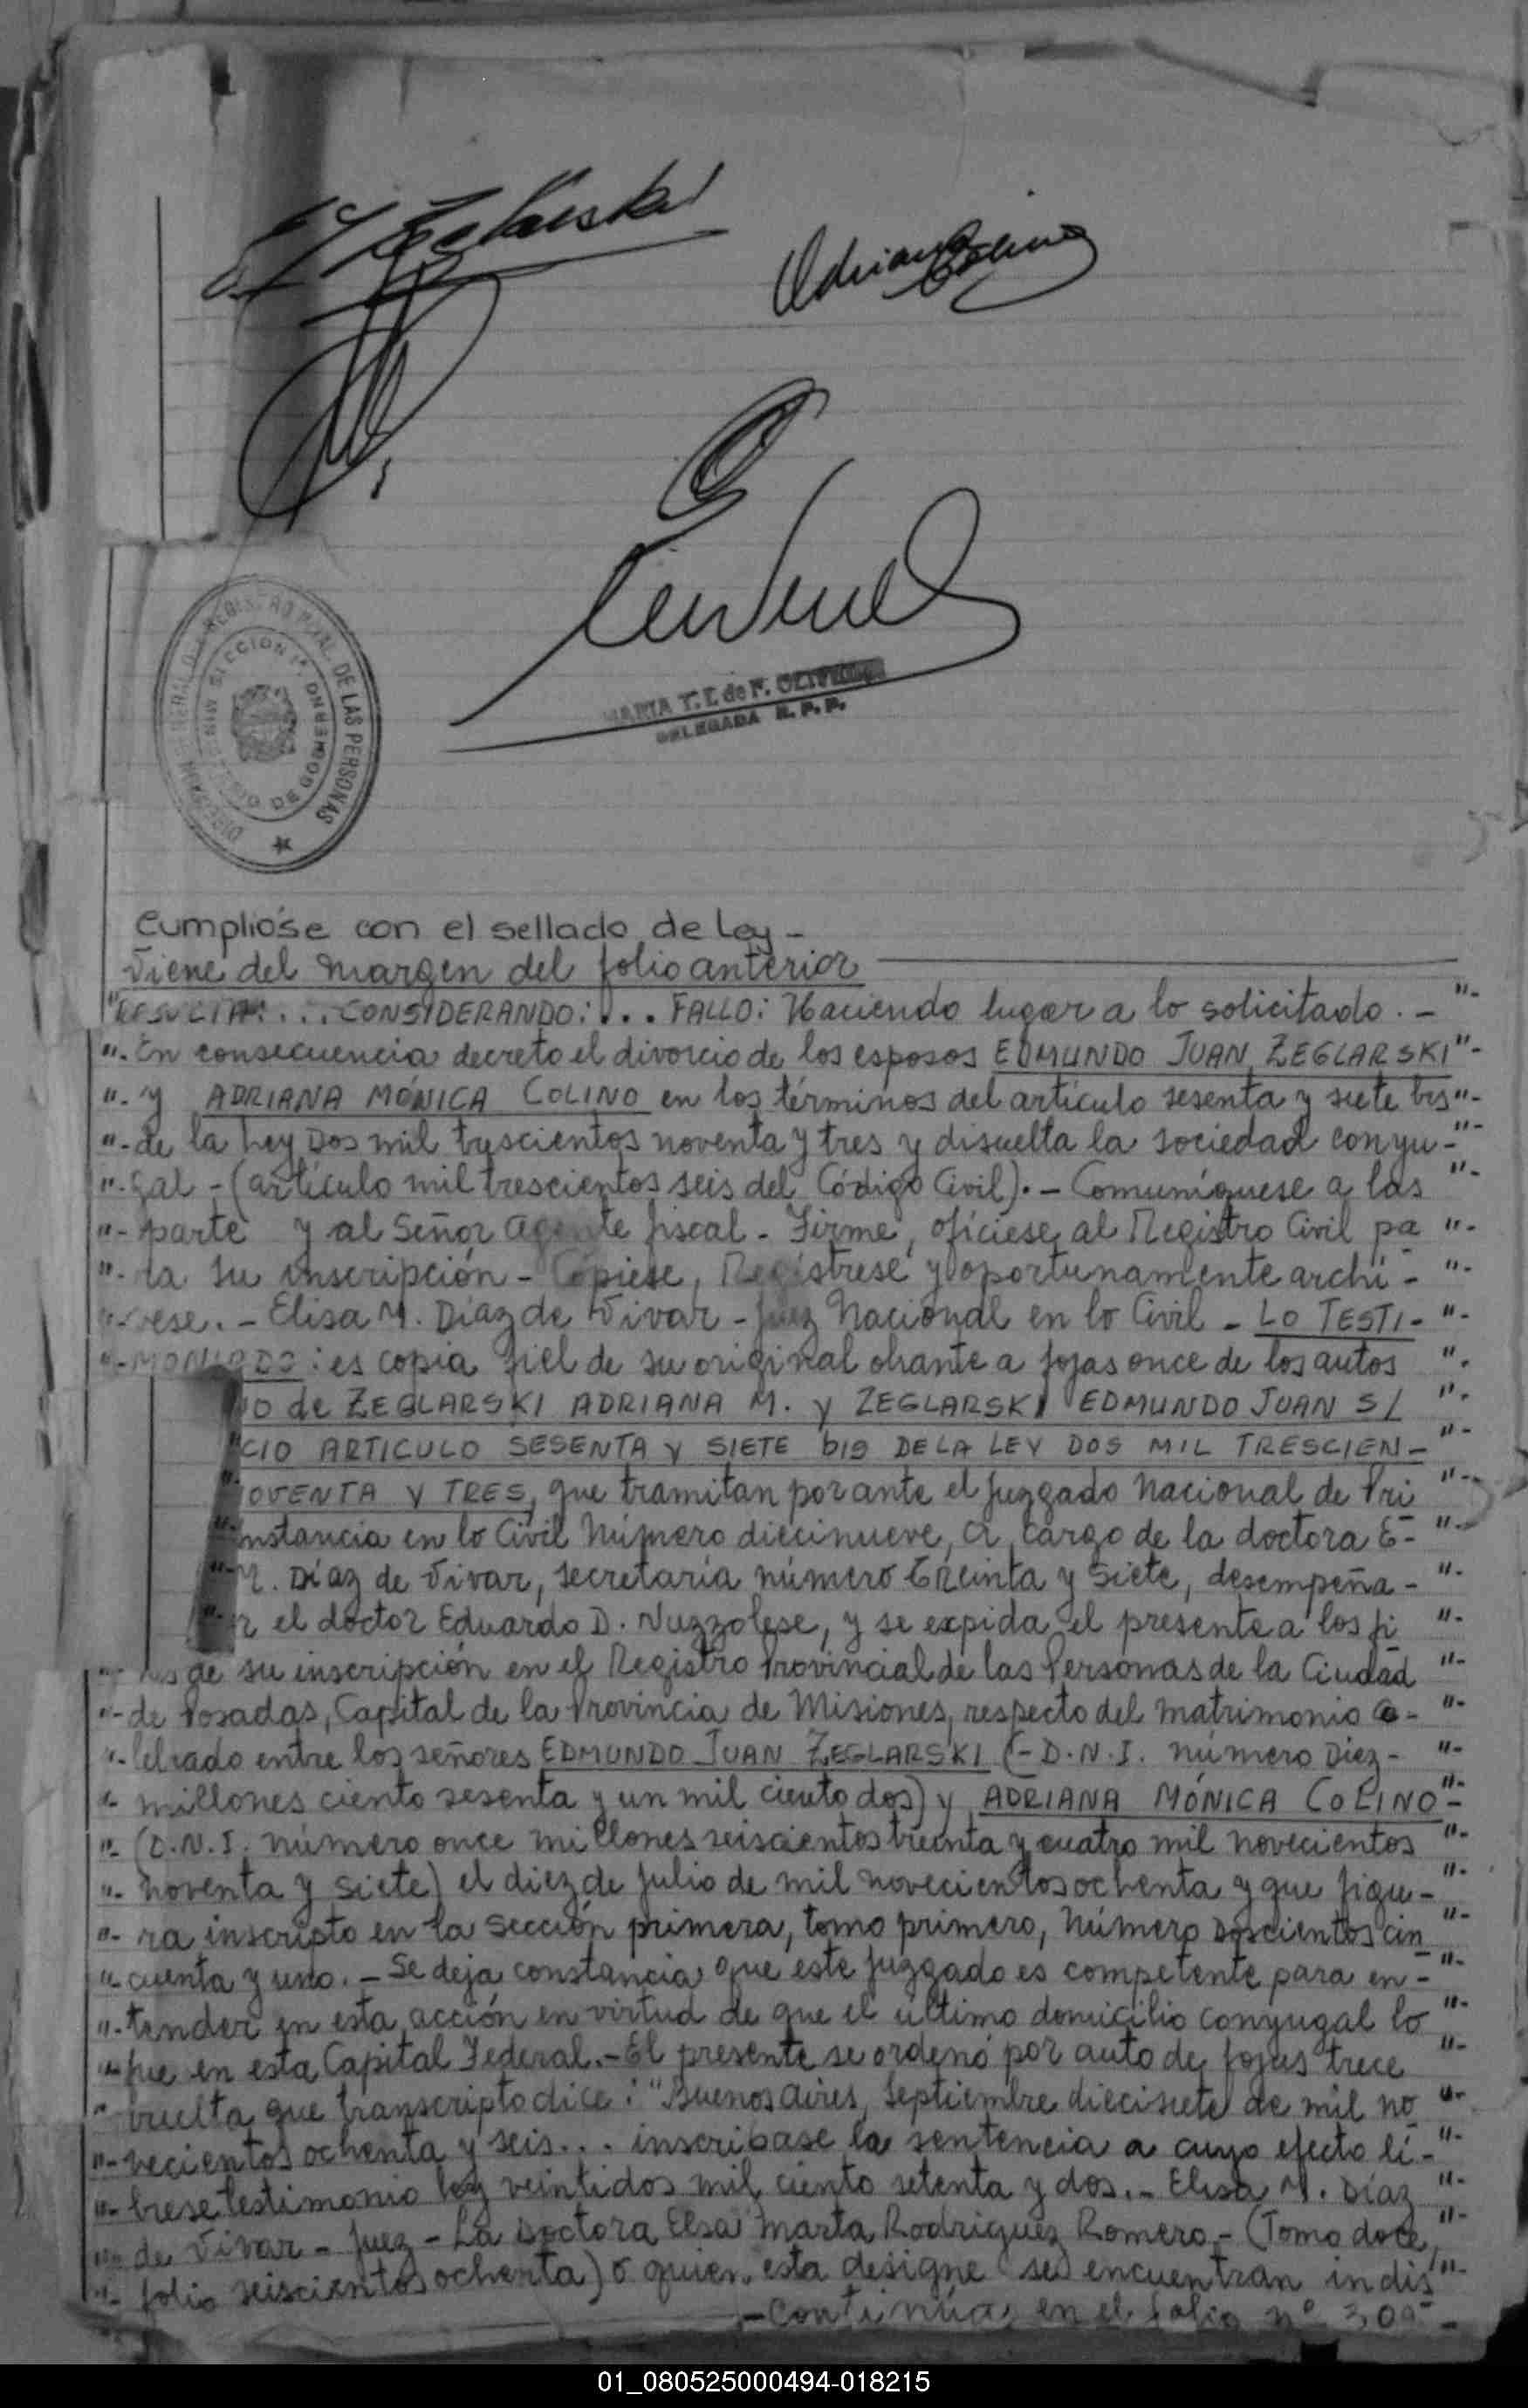 E J Zeglarski
Adriana Colino
DIRECCION GENERAL DEL REGISTRO PCIAL. DE LAS PERSONAS
SECCION 1ª. MINISTERIO DE GOBIERNO
MARIA T. I. de F. OLIVEIRA
DELEGADA R. P. P.
Cumplióse con el sellado de Ley -
Viene del margen del folio anterior
"RESULTA: ... CONSIDERANDO: ... FALLO: Haciendo lugar a lo solicitado. - "-
"- En consecuencia decreto el divorcio de los esposos EDMUNDO JUAN ZEGLARSKI "-
"- y ADRIANA MÓNICA COLINO en los términos del artículo sesenta y siete bis "-
"- de la Ley Dos mil trescientos noventa y tres y disuelta la sociedad conyu- "-
"- gal - (artículo mil trescientos seis del Código Civil). - Comuníquese a las "-
"- parte y al Señor Agente fiscal - Firme, ofíciese al Registro Civil pa "-
"- ra su inscripción - Cópiese, Regístrese y oportunamente archi- "-
"- vese. - Elisa M. Díaz de Vivar - Juez Nacional en lo Civil - LO TESTI- "-
"- MONIADO: es copia fiel de su original obrante a fojas once de los autos "-
IO de ZEGLARSKI ADRIANA M. y ZEGLARSKI EDMUNDO JUAN S/ "-
CIO ARTICULO SESENTA Y SIETE bis DE LA LEY DOS MIL TRESCIEN- "-
"- OVENTA Y TRES, que tramitan por ante el Juzgado Nacional de Pri "-
"- nstancia en lo Civil Número diecinueve, a cargo de la doctora E- "-
"- M. Díaz de Vivar, secretaría número treinta y siete, desempeña- "-
"- r el doctor Eduardo D. Nuzzolese, y se expida el presente a los fi "-
"- nes de su inscripción en el Registro Provincial de las Personas de la Ciudad "-
"- de Posadas, Capital de la Provincia de Misiones, respecto del matrimonio ce- "-
"- lebrado entre los señores EDMUNDO JUAN ZEGLARSKI (- D.N.I. número Diez- "-
"- millones ciento sesenta y un mil ciento dos) y ADRIANA MÓNICA COLINO- "-
"- (D.N.I. número once millones seiscientos treinta y cuatro mil novecientos "-
"- noventa y siete) el diez de Julio de mil novecientos ochenta y que figu- "-
"- ra inscripto en la Sección primera, tomo primero, número Doscientos cin "-
"- cuenta y uno. - Se deja constancia que este juzgado es competente para en- "-
"- tender en esta acción en virtud de que el último domicilio conyugal lo "-
"- fue en esta Capital Federal. - El presente se ordenó por auto de fojas trece "-
"- vuelta que transcripto dice: "Buenos Aires, Septiembre diecisiete de mil no "-
"- vecientos ochenta y seis... inscríbase la sentencia a cuyo efecto lí- "-
"- brese testimonio ley veintidos mil ciento setenta y dos. - Elisa M. Díaz "-
"- de Vivar - Juez - La Doctora Elsa Marta Rodriguez Romero - (Tomo doce, "-
"- folio seiscientos ochenta) o quien esta designe se encuentran indis "-
- Continúa en el folio nº 309 -
01_080525000494-018215